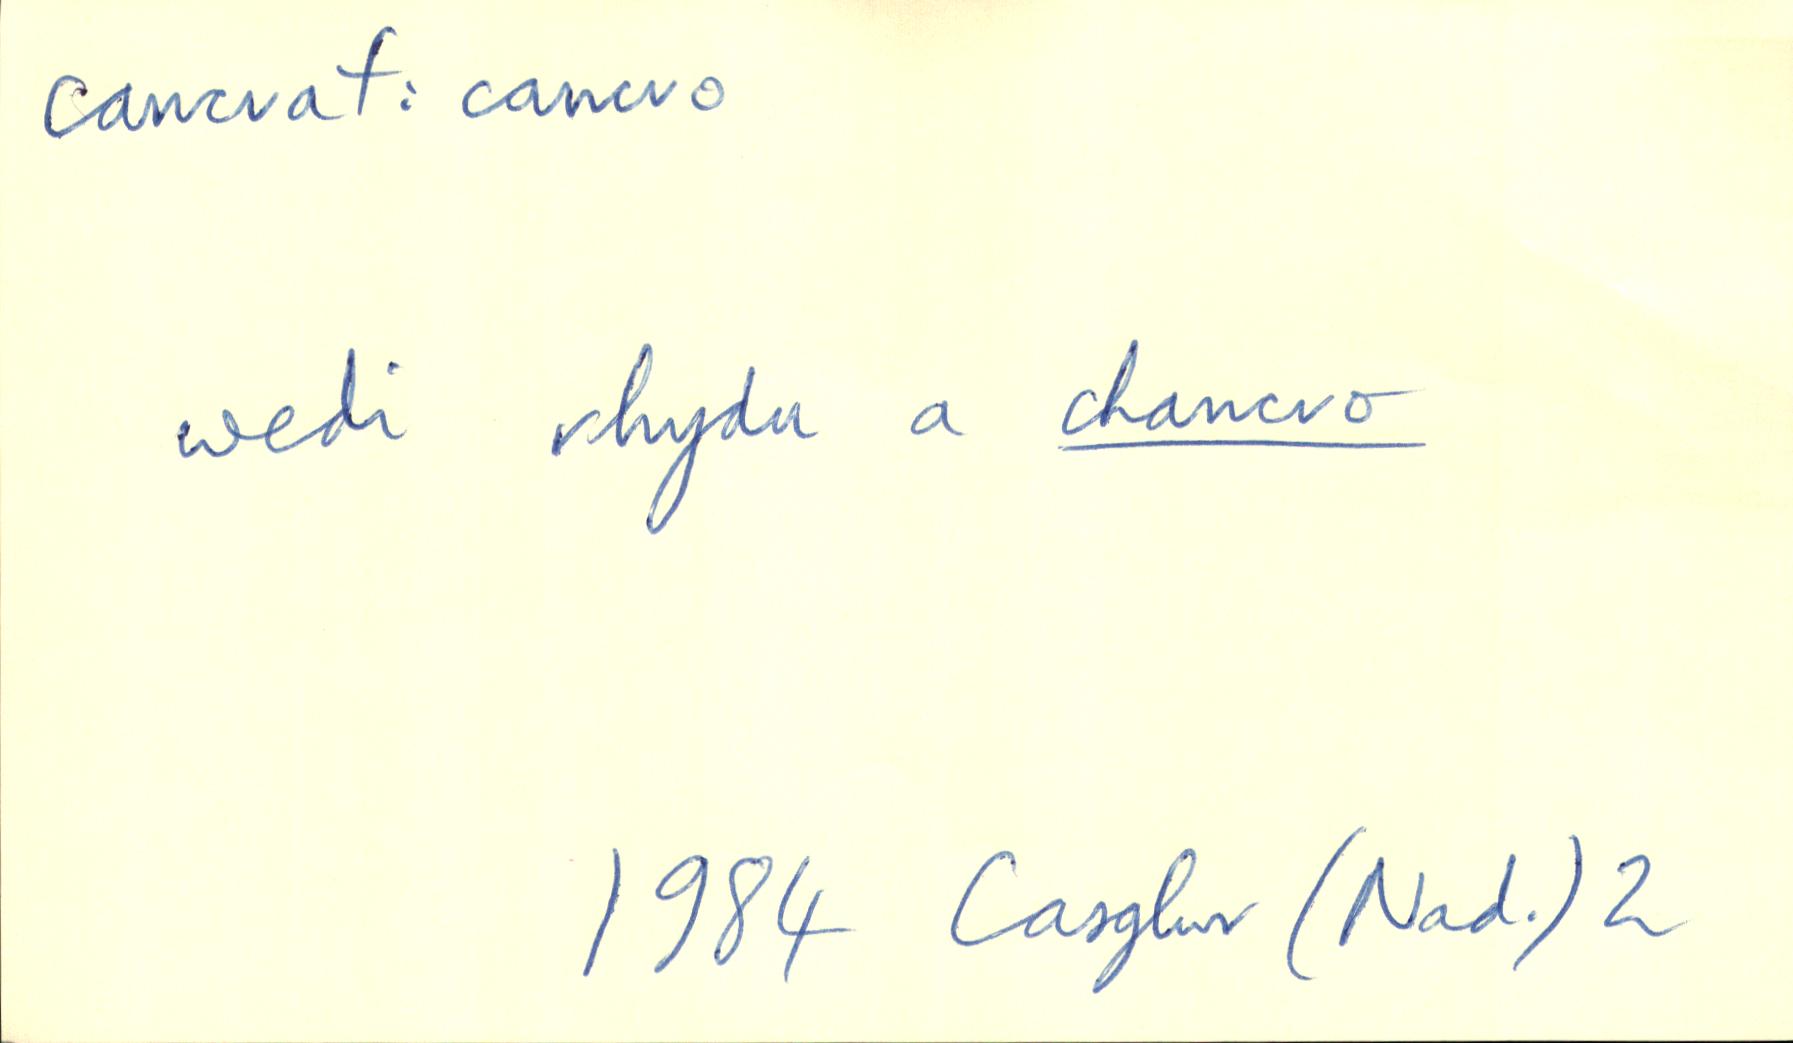 cancraf: cancro
wedi rhydu a chancro
1984 Casglwr (Nad.) 2